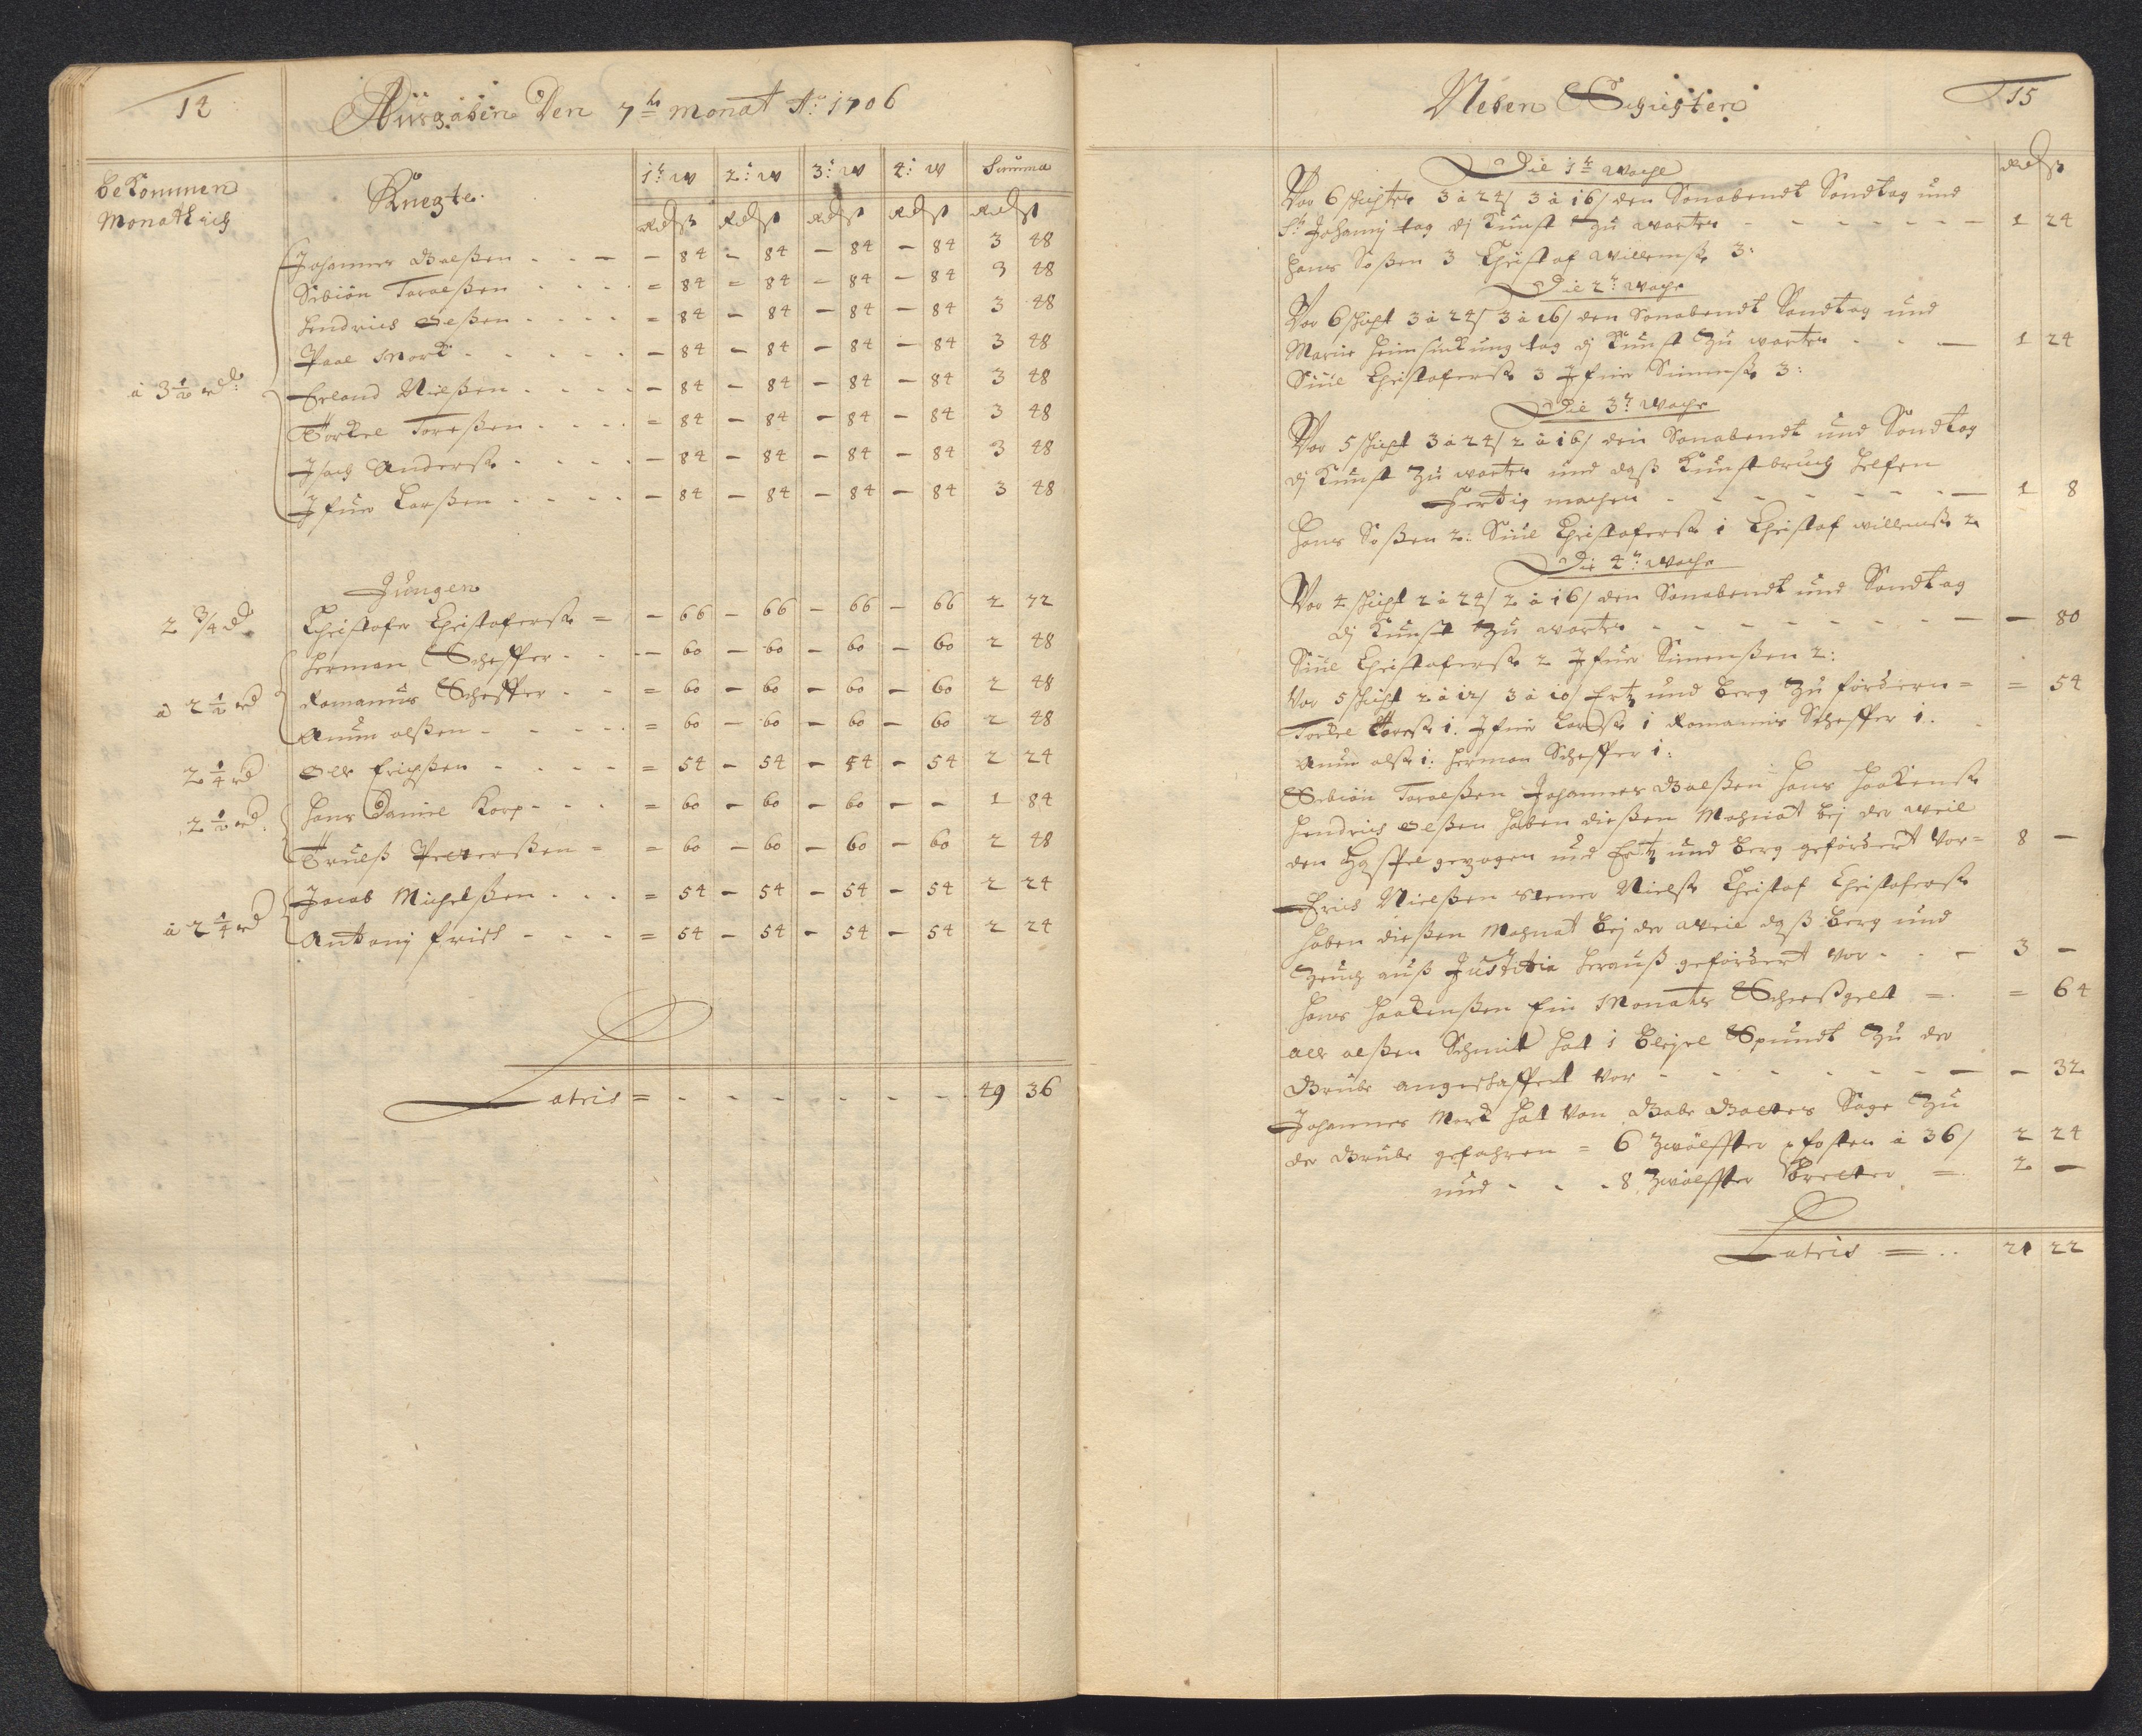 14
Ausgaben Den 7ts Monat Ao: 1706
bekommen
Monatlich
Knegte
1te W 2: W 3: W 4: W Summa
Rd ß Rd ß Rd ß Rd ß Rd ß
Johannes Balßen - - - - 84 - 84 - 84 - 84 3 48
Sebiön Toroelßen - - - = 84 = 84 - 84 - 84 3 48
Hendrich Oelßen - - - - = 84 - 84 - 84 - 84 3 48
Paal Mork - - - - - - 84 - 84 - 84 - 84 3 48
à 3 1/2 rd: Erland Nielßen - - - - - 84 - 84 - 84 - 84 3 48
Torkel Toreßen - - - - = 84 - 84 - 84 - 84 3 48
Isach Anderß - - - - - 84 - 84 - 84 - 84 3 48
Ifuer Larßen - - - - - 84 - 84 - 84 - 84 3 48
Jungen
2 3/4 rd Christofer Christoferß = - 66 - 66 - 66 - 66 2 72
Herman Scheffer - - - - 60 - 60 - 60 - 60 2 48
à 2 1/2 rd Romanus Scheffer - - = 60 - 60 - 60 - 60 2 48
Anun olßen - - - - = 60 - 60 - 60 - 60 2 48
2 1/4 rd Ole Erichßen - - - - = 54 - 54 - 54 - 54 2 24
2 1/2 rd. Hans Daniel Korp - - - = 60 - 60 - 60 - - 1 84
Truelß Pederßen = = 60 - 60 - 60 - 60 2 48
Jacob Michelßen - - - = 54 - 54 - 54 - 54 2 24
à 2 1/4 rd Antoni Frich - - - = 54 - 54 - 54 - 54 2 24
Latris = - - - - - - - 49 36
Neben Schigten
15
Die 1te Woche
Rd ß
Vor 6 schichten 3 à 24/ 3 à 16/ den Sonabendt Sondtag und
St Johanni tag di Kunst Zu warten - - - - - - 1 24
Hans Poßen 3 Christof Willemß 3:
Die 2te Woche
Vor 6 schicht 3 à 24/ 3 à 16/ den Sonabendt Sondtag und
Marie Heimsuckung tag di Kunst Zu warten - - - 1 24
Siul Christoferß 3 Ifuer Simenß 3:
Die 3te Woche
Vor 5 schicht 3 à 24/ 2 à 16/ den Sonabendt und Sondtag
di Kunst Zu warten und daß Kunstbruch helfen
fertig machen - - - - - - - - 1 8
Hans Poßen 2: Siul Christoferß 1 Christof Willemß 2
Die 4te Woche
Vor 4 schicht 2 à 24/ 2 à 16/ den Sonabendt und Sondtag
di Kunst Zu warten - - - - - - - - - 80
Siul Christoferß 2 Ifuer Simenßen 2:
Vor 5 schicht 2 à 12/ 3 à 10/ Ertz und Berg Zu fördern = = 54
Torkel Toreß 1. Ifuer Larß 1 Romanus Scheffer 1.
Anun olß 1: Herman Scheffer 1:
Sebiön Toroelßen Johannes Balßen Hans Haakenß
Hendrich Oelßen haben dießen Mohnat bej der weil
den Haspel gezogen und Ertz und Berg gefördert Vor = 8 -
Erich Nielßen Stener Nielß Christof Christoferß
haben dießen Mohnat bej der weil daß Berg und
Zeuch auß Justitia herauß gefördert vor - - - 3 -
Hans Haakenßen Ein Monats Schießgelt = = 64
Ole olßen Schmit hat 1 Spundt Zu der
Grube angeschaffent vor - - - - - - - - 32
Johannes Mork hat Von Sage Zu
der Grube gefahren = 6 Zwölffter pfosten à 36/ 2 24
und - - - 8 Zwölffter Bretter = 2 -
Latris = . . 21 22